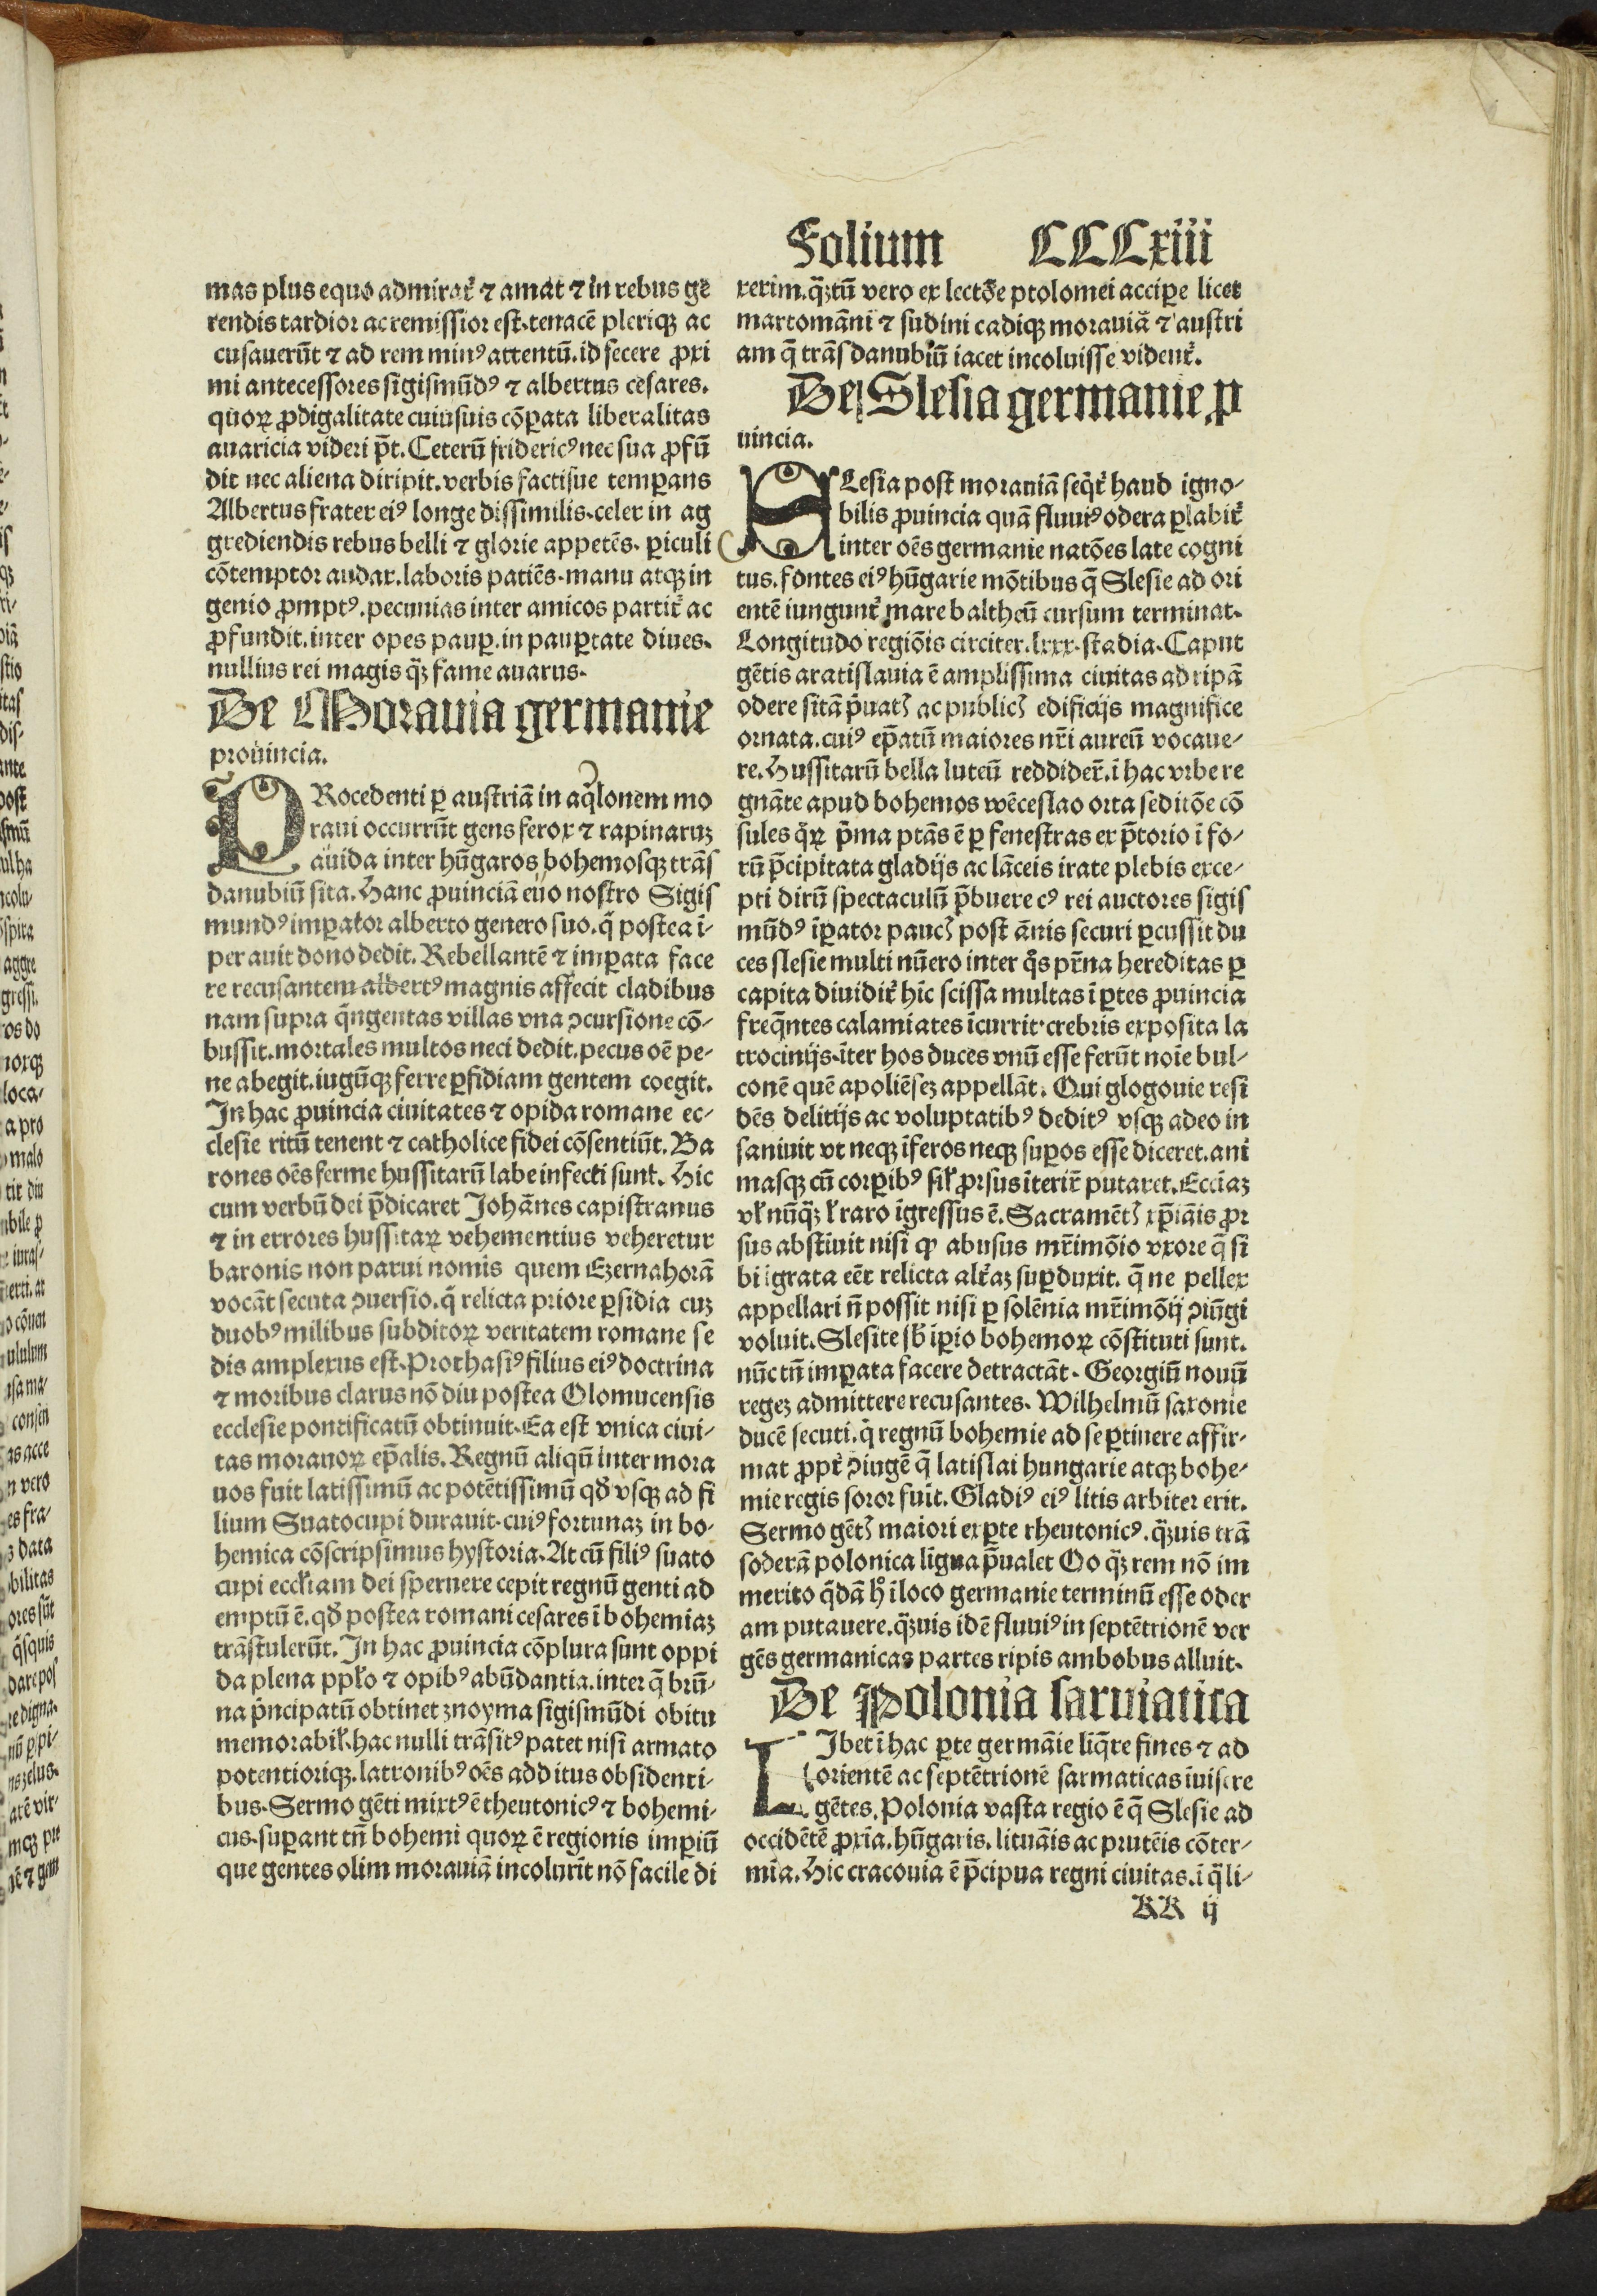 Folium CCCxiii
mas plus equo admirat᷑ ⁊ amat ⁊ in rebus ge
rendis tardior ac remissior est. tenacē pleriqꝫ ac
cusauerūt ⁊ ad rem minꝰ attentū. id fecere ꝓxi
mi antecessores sigismūdꝰ ⁊ albertus cesares.
quoꝝ ꝓdigalitate cuiusuis cōꝑata liberalitas
auaricia videri p̄t. Ceterū fridericꝰ nec sua ꝓfū
dit nec aliena diripit. verbis factisue temꝑans
Albertus frater eiꝰ longe dissimilis. celer in ag
grediendis rebus belli ⁊ glorie appetēs. ꝑiculi
cōtemptor audax. laboris patiēs. manu atqꝫ in
genio ꝓmptꝰ. pecunias inter amicos partit᷑ ac
ꝓfundit. inter opes pauꝑ. in pauꝑtate diues.
nullius rei magis qꝫ̄ fame auarus.
De Morauia germanie
prouincia.
PRocedenti ꝑ austriā in aq̇lonem mo
raui occurrūt gens ferox ⁊ rapinaruꝫ
auida inter hūgaros bohemosqꝫ trās
danubiū sita. Hanc ꝓuinciā euo nostro Sigis
mundꝰ imꝑator alberto genero suo. q̇ postea ī-
perauit dono dedit. Rebellantē ⁊ imꝑata face
re recusantem albertꝰ magnis affecit cladibus
nam supra q̇ngentas villas vna ꝯcursione cō-
bussit. mortales multos neci dedit. pecus oē pe-
ne abegit. iugūqꝫ ferre ꝑfidiam gentem coegit.
In hac ꝓuincia ciuitates ⁊ opida romane ec-
clesie ritū tenent ⁊ catholice fidei cōsentiūt. Ba
rones oēs ferme hussitarū labe infecti sunt. Hic
cum verbū dei p̄dicaret Johānes capistranus
⁊ in errores hussitaꝝ vehementius veheretur
baronis non parui nomis quem Ezernahorā
vocāt secuta ꝯuersio. q̇ relicta priore ꝑfidia cuꝫ
duobꝰ milibus subditoꝝ veritatem romane se
dis amplexus est. Prothasiꝰ filius eiꝰ doctrina
⁊ moribus clarus nō diu postea Olomucensis
ecclesie pontificatū obtinuit. Ea est vnica ciui-
tas morauoꝝ ep̄alis. Regnū aliqū inter mora
uos fuit latissimū ac potētissimū qđ vsqꝫ ad fi
lium Suatocupi durauit. cuiꝰ fortunaꝫ in bo-
hemica cōscripsimus hystoria. At cū filiꝰ suato
cupi eccłiam dei spernere cepit regnū genti ad
emptū ē. qđ postea romani cesares ī bohemiaꝫ
trāstulerūt. In hac ꝓuincia cōplura sunt oppi
da plena ppło ⁊ opibꝰ abūdantia. inter q̄ brū-
na pͥncipatū obtinet znoyma sigismūdi obitu
memorabił. hac nulli trāsitꝰ patet nisi armato
potentioriqꝫ. latronibꝰ oēs additus obsidenti-
bus. Sermo gēti mixtꝰ ē theutonicꝰ ⁊ bohemi-
cus. suꝑant tn̄ bohemi quoꝝ ē regionis imꝑiū
que gentes olim morauiā incolurīt nō facile di
xerim. qꝫ̄tū vero ex lectōe ptolomei acciꝑe licet
martomāni ⁊ sudini cadiqꝫ morauiā ⁊ austri
am q̄ trās danubiū iacet incoluisse vident᷑.
De Slesia germanie ꝓ
uincia.
SLesia post morauiā seq̇t᷑ haud igno-
bilis ꝓuincia quā fluuiꝰ odera ꝑlabit᷑
inter oēs germanie natōes late cogni
tus. fontes eiꝰ hūgarie mōtibus q̄ Slesie ad ori
entē iungunt᷑ mare baltheū cursum terminat.
Longitudo regiōis circiter. lxxx. stadia. Caput
gētis aratislauia ē amplissima ciuitas ad ripā
odere sitā pͥuatꝭ ac publicꝭ edificijs magnifice
ornata. cuiꝰ ep̄atū maiores nr̄i aureū vocaue-
re. Hussitarū bella luteū reddider̄. ī hac vrbe re
gnāte apud bohemos wēceslao orta seditōe cō
sules q̊ꝝ pͥma ptās ē ꝑ fenestras ex p̄torio ī fo-
rū p̄cipitata gladijs ac lāceis irate plebis exce-
pti dirū spectaculū p̄buere cꝰ rei auctores sigis
mūdꝰ īꝑator paucꝭ post ānis securi ꝑcussit du
ces slesie multi nūero inter q̊s pr̄na hereditas ꝑ
capita diuidit᷑ hīc scissa multas ī ꝑtes ꝓuincia
freq̄ntes calamiates īcurrit. crebris exposita la
trocinijs. īter hos duces vnū esse ferūt noīe bul-
conē quē apoliēseꝫ appellāt. Qui glogouie resi
dēs delitijs ac voluptatibꝰ deditꝰ vsqꝫ adeo in
saniuit vt neqꝫ īferos neqꝫ suꝑos esse diceret. ani
masqꝫ cū corꝑibꝰ sił ꝓrsus īterir̄ putaret. Eccīaꝫ
vł nūqꝫ̄ ł raro īgressus ē. Sacramētꝭ xp̄iāis ꝓr
sus abstīuit nisi ꝙ abusus mr̄imōio vxore q̄ si
bi īgrata eēt relicta alt᷑aꝫ suꝑduxit. q̄ ne pellex
appellari n̄ possit nisi ꝑ solēnia mr̄imōij ꝯiūgi
voluit. Slesite sƀ īꝑio bohemoꝝ cōstituti sunt.
nūc tn̄ imꝑata facere detractāt. Georgiū nouū
regeꝫ admittere recusantes. Wilhelmū saxonie
ducē secuti. q̇ regnū bohemie ad se ꝑtinere affir-
mat ꝓpt᷑ ꝯiugē q̄ latislai hungarie atqꝫ bohe-
mie regis soror fuit. Gladiꝰ eiꝰ litis arbiter erit.
Sermo gētꝭ maiori ex ꝑte theutonicꝰ. qꝫ̄uis trā
soderā polonica līgua p̄ualet Qo qꝫ̄ rem nō im
merito q̄dā hͦ ī loco germanie terminū esse oder
am putauere. qꝫ̄uis idē fluuiꝰ in septētrionē ver
gēs germanicas partes ripis ambobus alluit.
De Polonia sarmatica
LJbet ī hac ꝑte germāie liq̄re fines ⁊ ad
orientē ac septētrionē sarmaticas īuisere
gētes. Polonia vasta regio ē q̄ Slesie ad
occidētē ꝓxīa. hūgaris. lituāis ac prutēis cōter-
mīa. Hic cracouia ē p̄cipua regni ciuitas. ī q̄ li-
KK ij